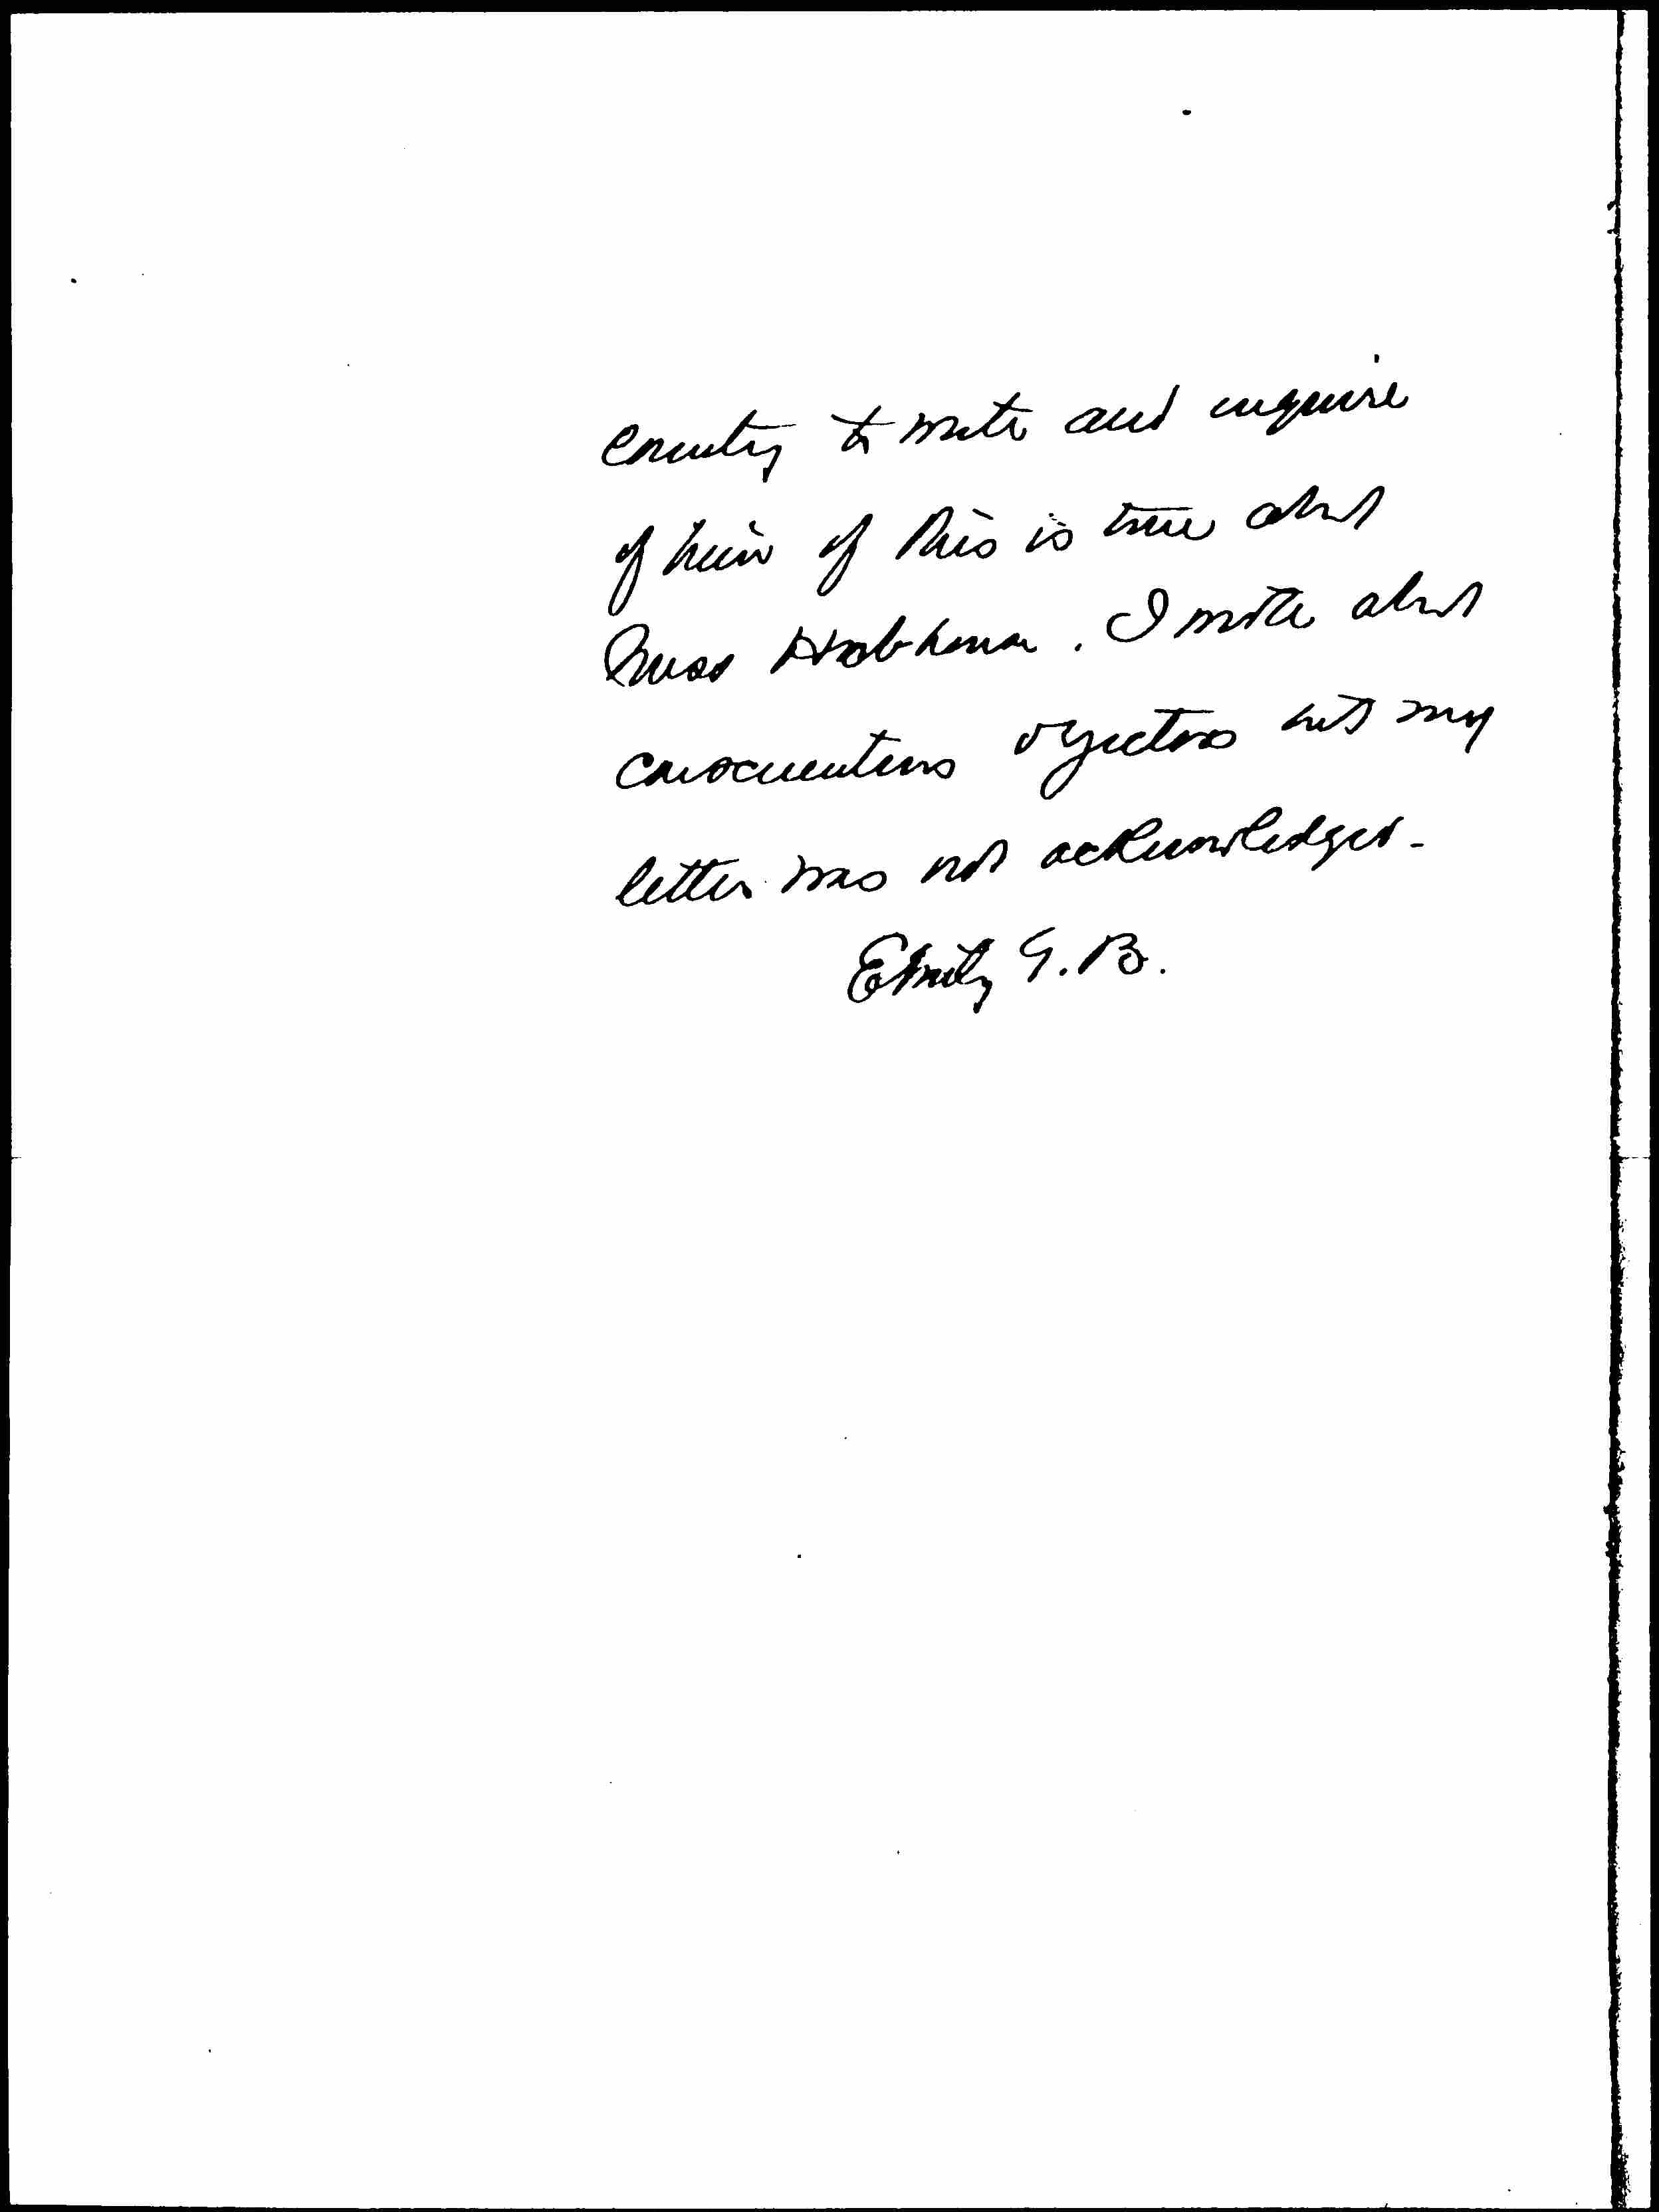 country to write and inquire
of him if this is true about
Miss Hobhouse. I wrote about
conscientious objectors but my
letter was not acknowledged.
Emily G. B.